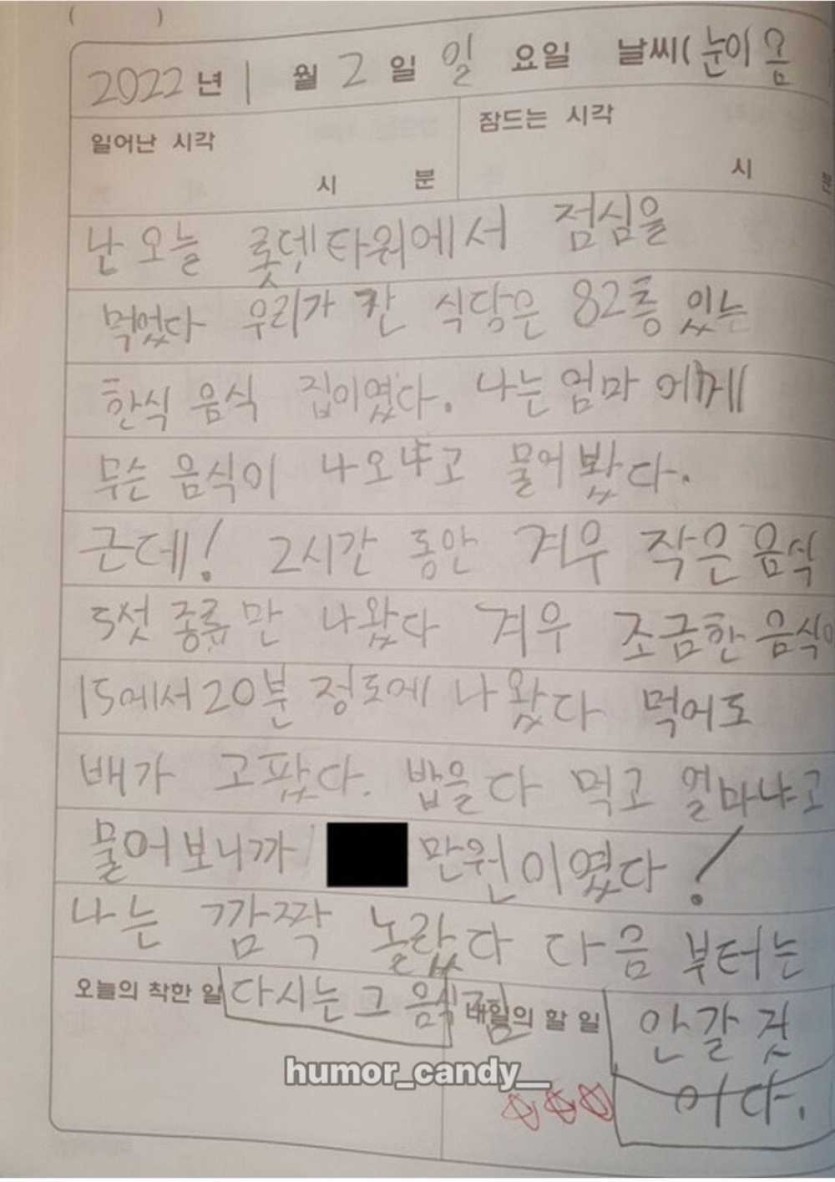 (          )
2022 년 1 월 2 일 일 요일 날씨( 눈이 옴
일어난 시각 시 분
잠드는 시각 시 분
난 오늘 롯뎃타워에서 점심을
먹었다 우리가 간 식당은 82층 있는
한식 음식 집이였다. 나는 엄마 에게
무슨 음식이 나오냐고 물어봤다.
근데! 2시간 동안 겨우 작은 음식
5섯 종류만 나왔다 겨우 조금한 음식이
15에서 20분 정도에 나왔다 먹어도
배가 고팠다. 밥을 다 먹고 얼마냐고
물어보니까 만원이였다!
나는 깜짝 놀랐다 다음 부터는
오늘의 착한 일 다시는 그 음식점
내일의 할 일 안갈 것
이다.
humor_candy__